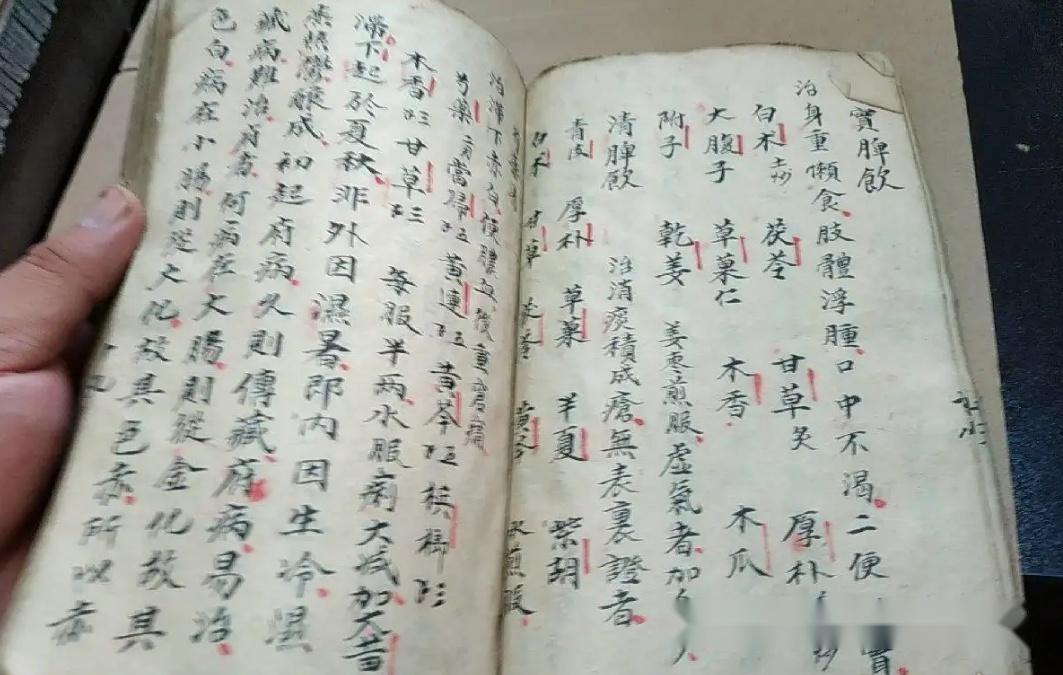 實脾飲
治身重懶食、肢體浮腫、口中不渴。二便
白朮土炒 茯苓 甘草炙 厚朴
大腹子 草菓仁 木香 木瓜
附子 乾姜 姜枣煎服、虛氣者、加人
清脾飲 治消痰積成瘧、無表裏證者。
青皮 厚朴 草菓 半夏 柴胡
白朮 甘草 茯苓 黄芩 水煎服、
治滯下赤白、便膿血、後重窘痛
芍藥二両 當歸 黄連 黄芩 梹榔
木香 甘草 每服半两、水服、痢不減、加大黄
滯下起於夏秋、非外因濕暑、即内因生冷、濕
蒸熱鬱釀成、初起府病、久則傳藏、府病易治、
藏病難治、府者何、病在大腸、則從金化、故其
色白、病在小腸、則從火化、故其色赤、所以赤